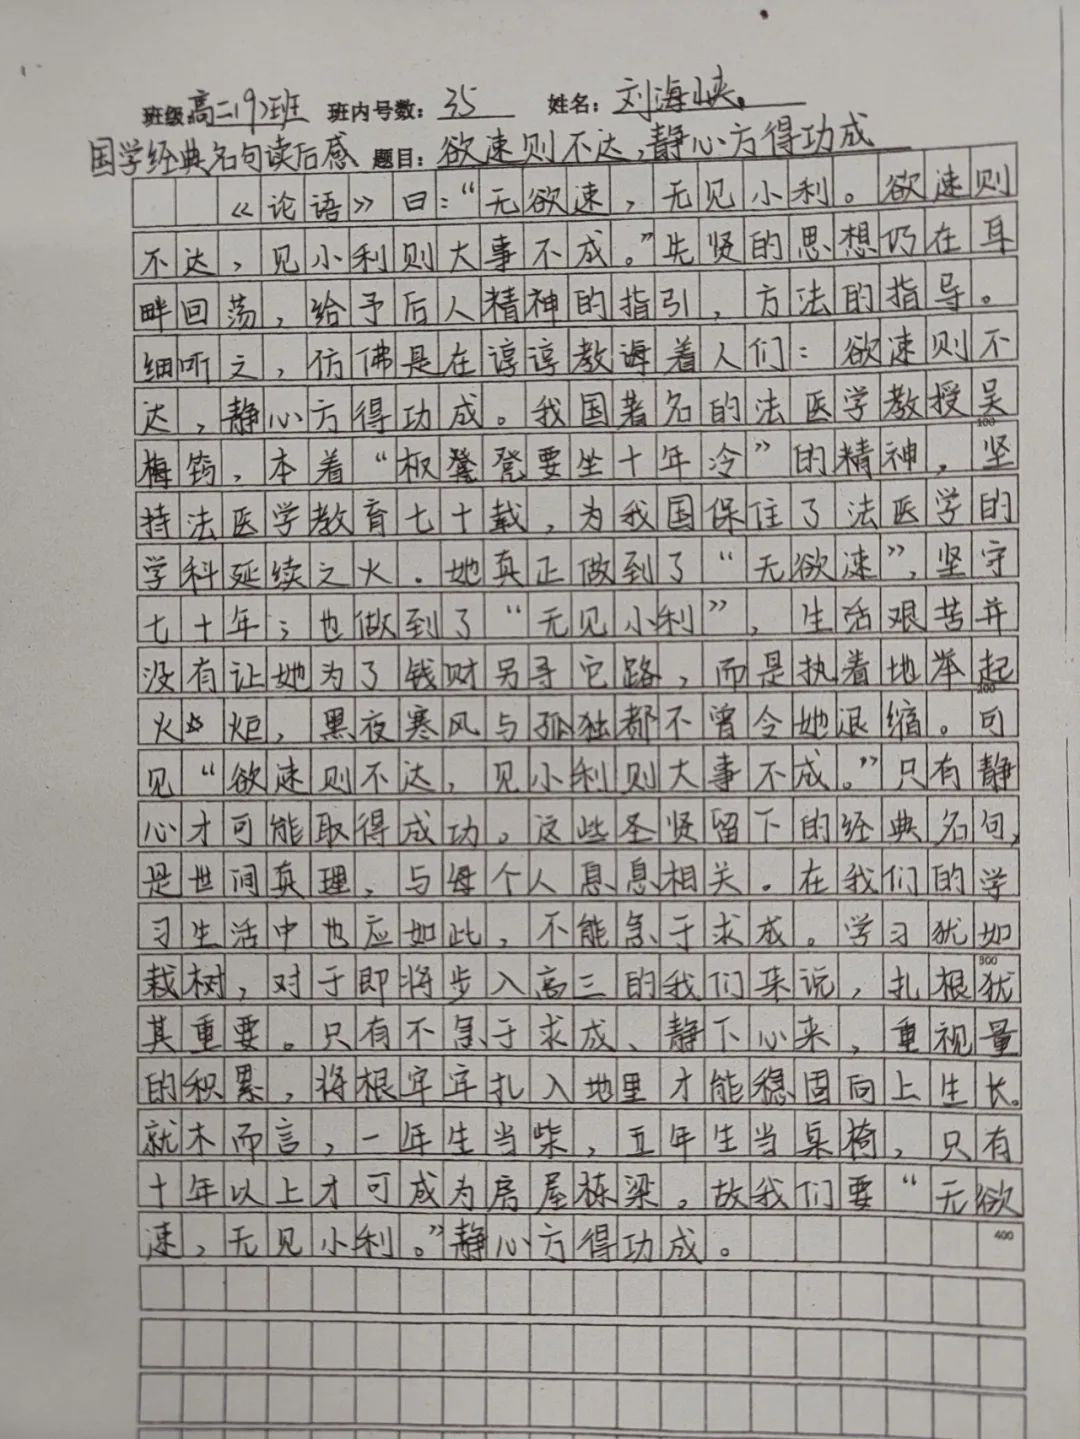 班级:高二19班 班内号数: 35 姓名: 刘海峡
国学经典名句读后感 题目: 欲速则不达,静心方得功成
《论语》曰:“无欲速,无见小利。欲速则
不达,见小利则大事不成。”先贤的思想仍在耳
畔回荡,给予后人精神的指引,方法的指导。
细听之,仿佛是在谆谆教诲着人们:欲速则不
达,静心方得功成。我国著名的法医学教授吴
100
梅筠,本着“板凳要坐十年冷”的精神,坚
持法医学教育七十载,为我国保住了法医学的
学科延续之火.她真正做到了“无欲速”,坚守
七十年;也做到了“无见小利”,生活艰苦并
没有让她为了钱财另寻它路,而是执着地举起
200
火炬,黑夜寒风与孤独都不曾令她退缩。可
见“欲速则不达,见小利则大事不成。”只有静
心才可能取得成功。这些圣贤留下的经典名句,
是世间真理,与每个人息息相关.在我们的学
习生活中也应如此,不能急于求成。学习犹如
300
栽树,对于即将步入高三的我们来说,扎根犹
其重要。只有不急于求成、静下心来,重视量
的积累,将根牢牢扎入地里才能稳固向上生长。
就木而言,一年生当柴,五年生当桌椅,只有
十年以上才可成为房屋栋梁。故我们要“无欲
速,无见小利。”静心方得功成。
400